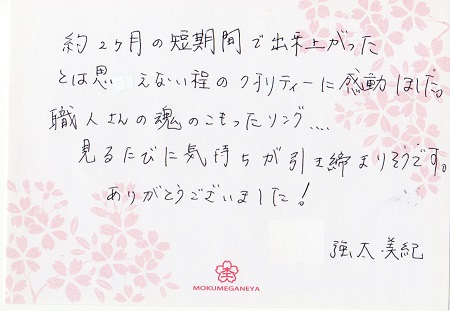 約2ヶ月の短期間で出来上がった
とは思えない程のクオリティーに感動しました。
職人さんの魂のこもったリング....
見るたびに気持ちが引き締まりそうです。
ありがとうございました!
強太 美紀
MOKUMEGANEYA